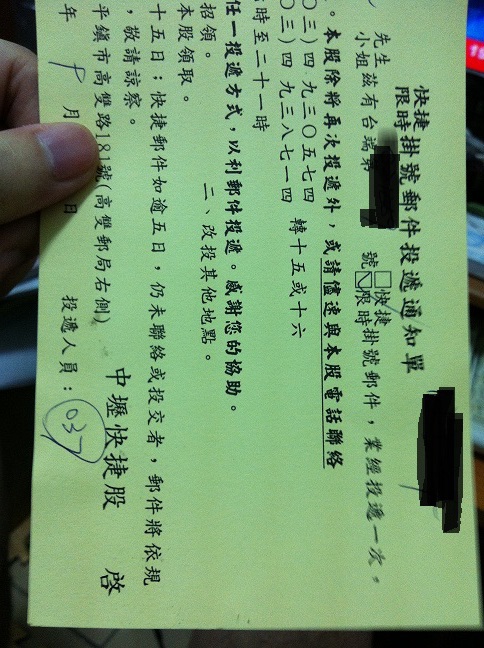 快捷
限時 掛號郵件投遞通知單
先生
小姐 茲有台端第
號 □快捷
☑限時 掛號郵件，業經投遞一次，
。本股除將再次投遞外，或請儘速與本股電話聯絡
〇三）四九三〇五七四
〇三）四九三八七一四 轉十五或十六
時至二十一時
任一投遞方式，以利郵件投遞。感謝您的協助。
招領。 二、改投其他地點。
本股領取。
十五日；快捷郵件如逾五日，仍未聯絡或投交者，郵件將依規
，敬請諒察。
中壢快捷股 啓
平鎮市高雙路181號（高雙郵局右側）
年 9 月 日 投遞人員：037